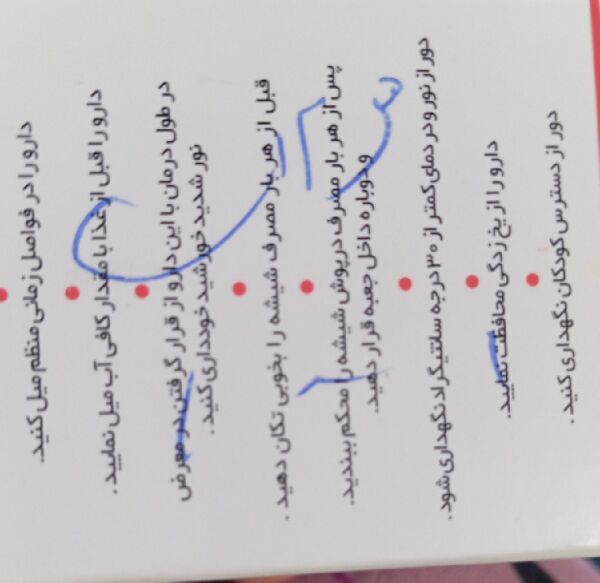 دارو را در فواصل زمانی منظم میل کنید.
دارو را قبل از غذا با مقدار کافی آب میل نمایید.
در طول درمان با این دارو از قرار گرفتن در معرض
نور شدید خورشید خودداری کنید.
قبل از هر بار مصرف شیشه را بخوبی تکان دهید.
پس از هر بار مصرف درپوش شیشه را محکم ببندید.
و دوباره داخل جعبه قرار دهید.
دور از نور و در دمای کمتر از ۳۰ درجه سانتیگراد نگهداری شود.
دارو را از یخ زدگی محافظت نمایید.
دور از دسترس کودکان نگهداری کنید.